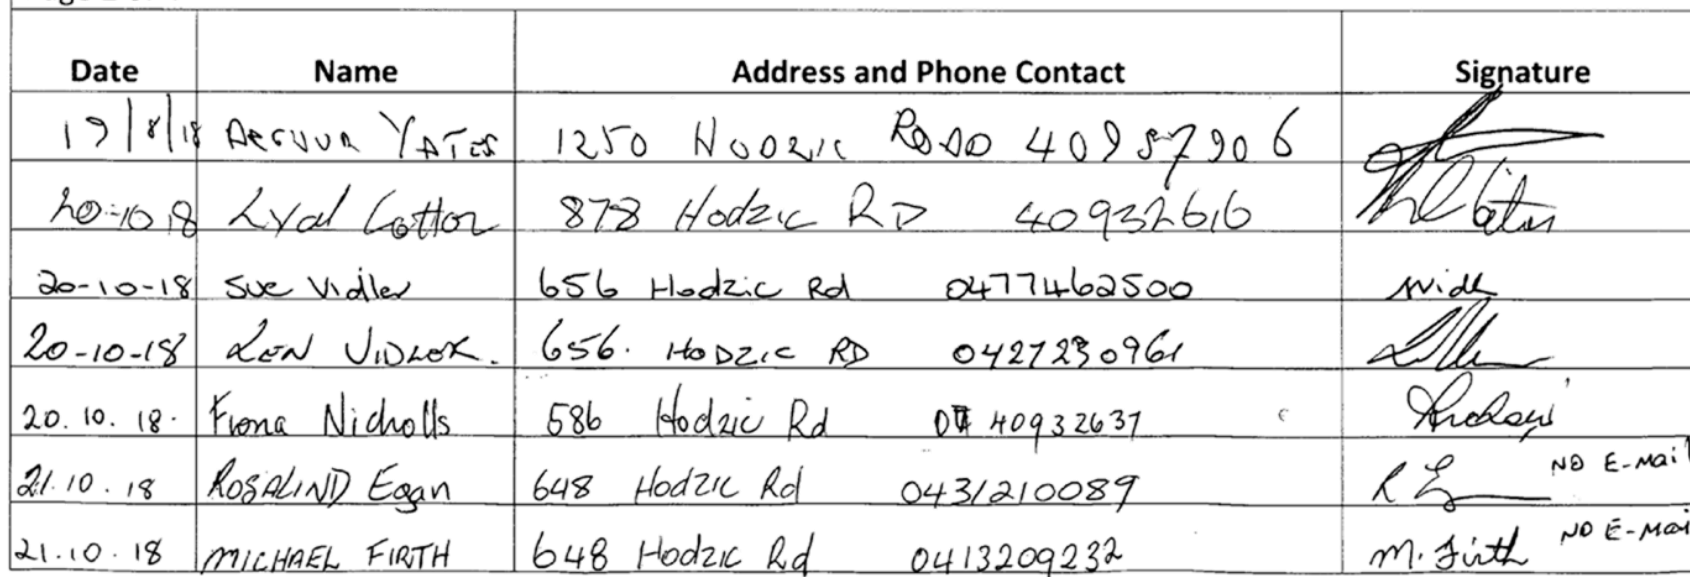 Date Name Address and Phone Contact Signature
19/8/18 YATES 1250 HODZIC ROAD 40957906
20-10 18 Lyal Cotton 878 Hodzic RD 40932616
20-10-18 Sue Vidler 656 Hodzic Rd 0477462500
20-10-18 LEN VIDLER. 656. HODZIC RD 0427230961
20.10.18. Fiona Nicholls 586 Hodzic Rd 07 40932637
21.10.18 ROSALIND Egan 648 Hodzic Rd 0431210089 NO E-Mail
21.10.18 MICHAEL FIRTH 648 Hodzic Rd 0413209232 M. Firth NO E-Mai